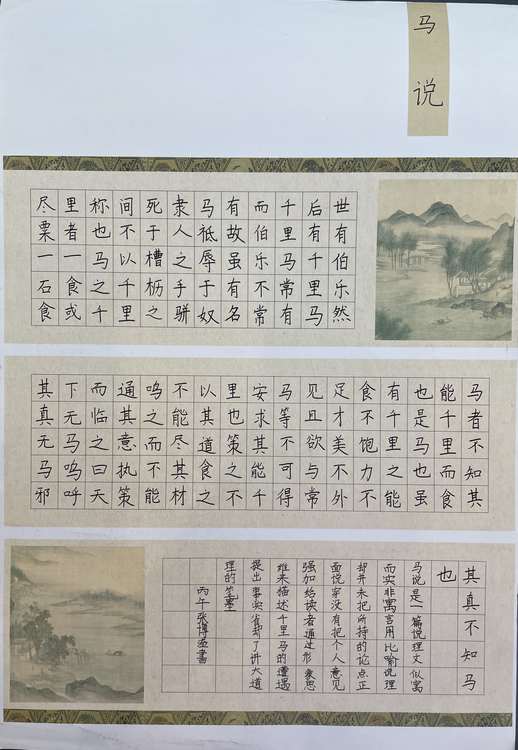 马说
世有伯乐然
后有千里马
千里马常有
而伯乐不常
有故虽有名
马祗辱于奴
隶人之手骈
死于槽枥之
间不以千里
称也马之千
里者一食或
尽粟一石食
马者不知其
能千里而食
也是马也虽
有千里之能
食不饱力不
足才美不外
见且欲与常
马等不可得
安求其能千
里也策之不
以其道食之
不能尽其材
鸣之而不能
通其意执策
而临之曰天
下无马呜呼
其真无马邪
其真不知马
也
马说是一篇说理文似寓
而实非寓言用比喻说理
却并未把所持的论点正
面说穿没有把个人意见
强加给读者通过形象思
维来描述千里马的遭遇
提出事实省却了讲大道
理的笔墨
丙午张博书